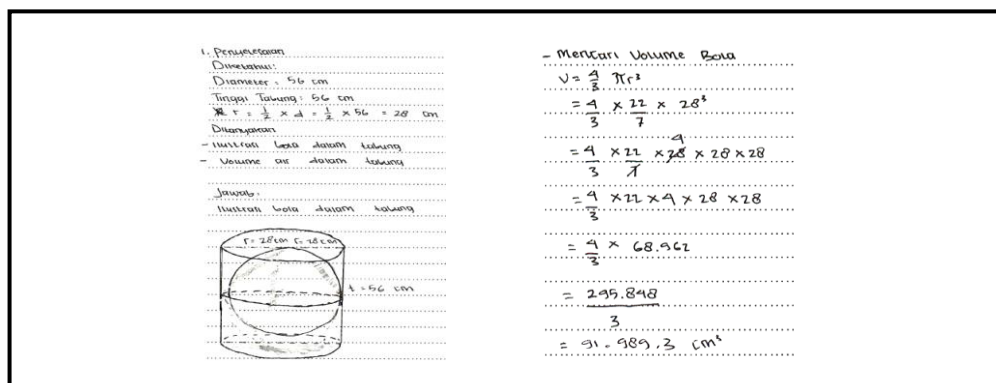 1. Penyelesaian
Diketahui:
Diameter : 56 cm
Tinggi Tabung : 56 cm
r = 1/2 × d = 1/2 × 56 = 28 cm
Ditanyakan
- Ilustrasi bola dalam tabung
- Volume air dalam tabung
Jawab:
Ilustrasi bola dalam tabung
r = 28 cm r = 28 cm
t = 56 cm
- Mencari Volume Bola
V = 4/3 πr³
= 4/3 × 22/7 × 28³
4
= 4/3 × 22/7 × 28 × 28 × 28
= 4/3 × 22 × 4 × 28 × 28
= 4/3 × 68.962
= 295.848/3
= 91.989,3 cm³